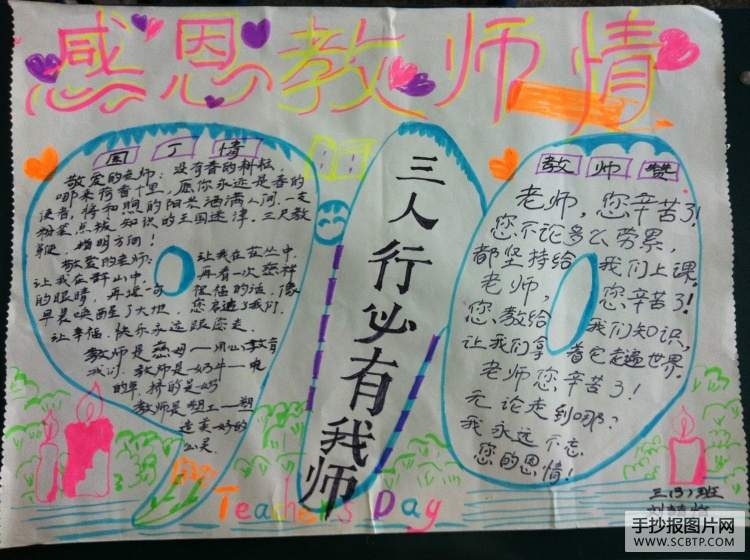 感恩教师情
园丁情
敬爱的老师：没有春的耕耘，
哪来荷香十里。愿你永远是春的
使者，将和煦的阳光洒满人间。一支
粉笔点拨知识的王国迷津。三尺教
鞭，指明方向！
敬爱的老师：让我在茫茫中，
让我在群山中，再看一次慈祥
的眼睛，再送一句祖福的话，像
早晨唤醒了大地，您启迪了我们，
让幸福、快乐永远跟您走。
教师是慈母—用心教育
我们。教师是奶牛—吃
的草，挤的是奶
教师是塑工—塑
造美好的
心灵。
三人行必有我师
教师赞
老师，您辛苦了！
您不论多么劳累，
都坚持给我们上课。
老师，您辛苦了！
您教给我们知识，
让我们拿着它走遍世界。
老师您辛苦了！
无论走到哪？
我永远不忘
您的恩情！
Teacher's Day
三(3)班
手抄报图片网
WWW.SCBTP.COM